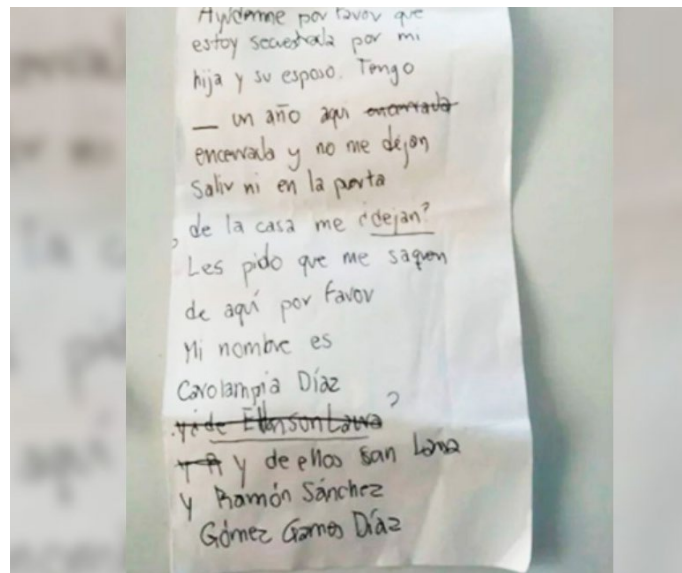 Ayúdenme por favor que
estoy secuestrada por mi
hija y su esposo. Tengo
— un año aqui encerrada
encerrada y no me dejan
Salir ni en la puerta
de la casa me ¿dejan?
Les pido que me saquen
de aquí por favor
Mi nombre es
Carolampia Díaz
?
y de ellos san Lana
y Ramón Sánchez
Gómez Gamos Díaz